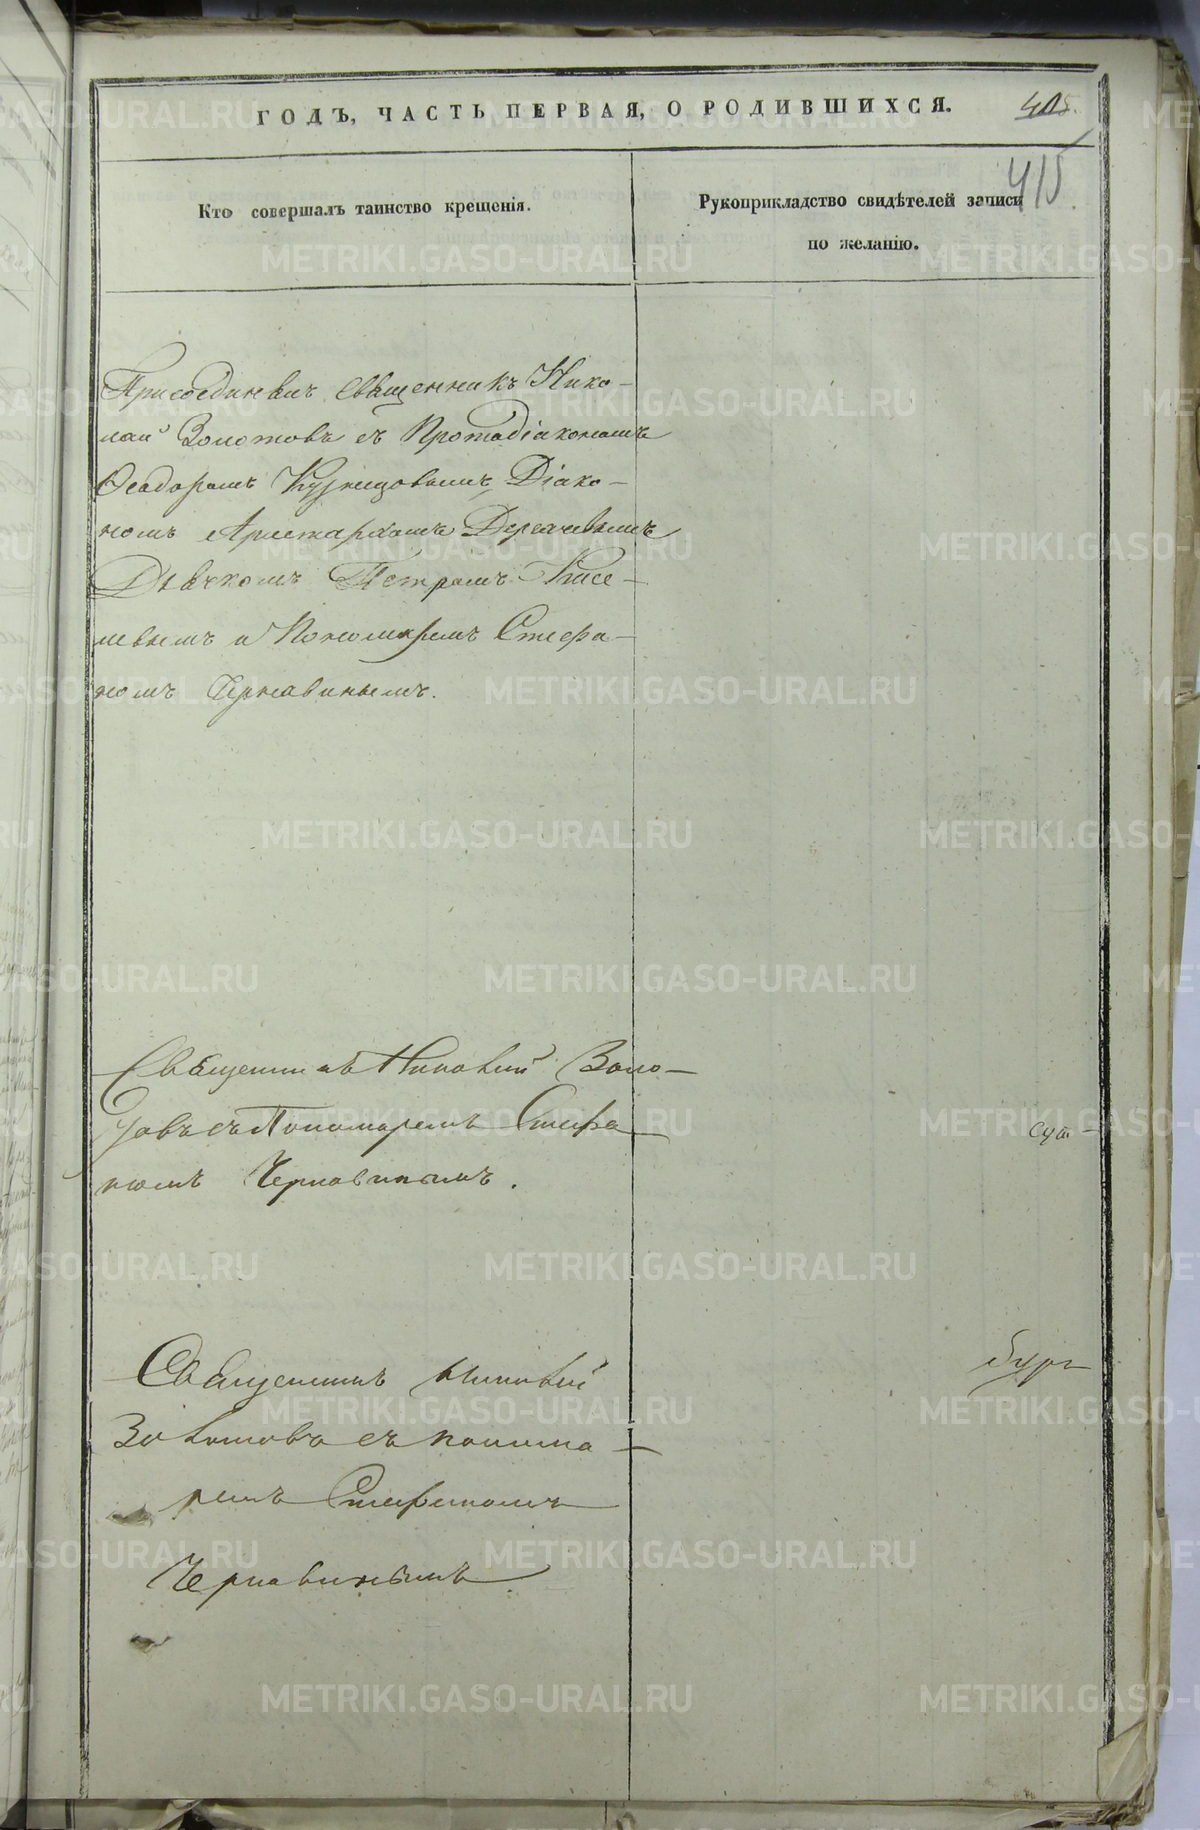 ГОДЪ, ЧАСТЬ ПЕРВАЯ, О РОДИВШИХСЯ.
405.
415.
Кто совершалъ таинство крещенія.
Рукоприкладство свидѣтелей записи
по желанію.
Священникъ Нико-
лай Золотовъ съ Протодіакономъ
Ѳеодоромъ Кузнецовымъ, Діако-
номъ Аристархомъ Дерячевымъ
Дьячкомъ Петромъ Кисе-
левымъ и Пономаремъ Стефа-
номъ Чернавинымъ.
Священникъ Николай Золо-
товъ съ Пономаремъ Стефа
номъ Чернавинымъ.
Священникъ Николай
Золотовъ съ понома-
ремъ Стефаномъ
Чернавинымъ
METRIKI.GASO-URAL.RU